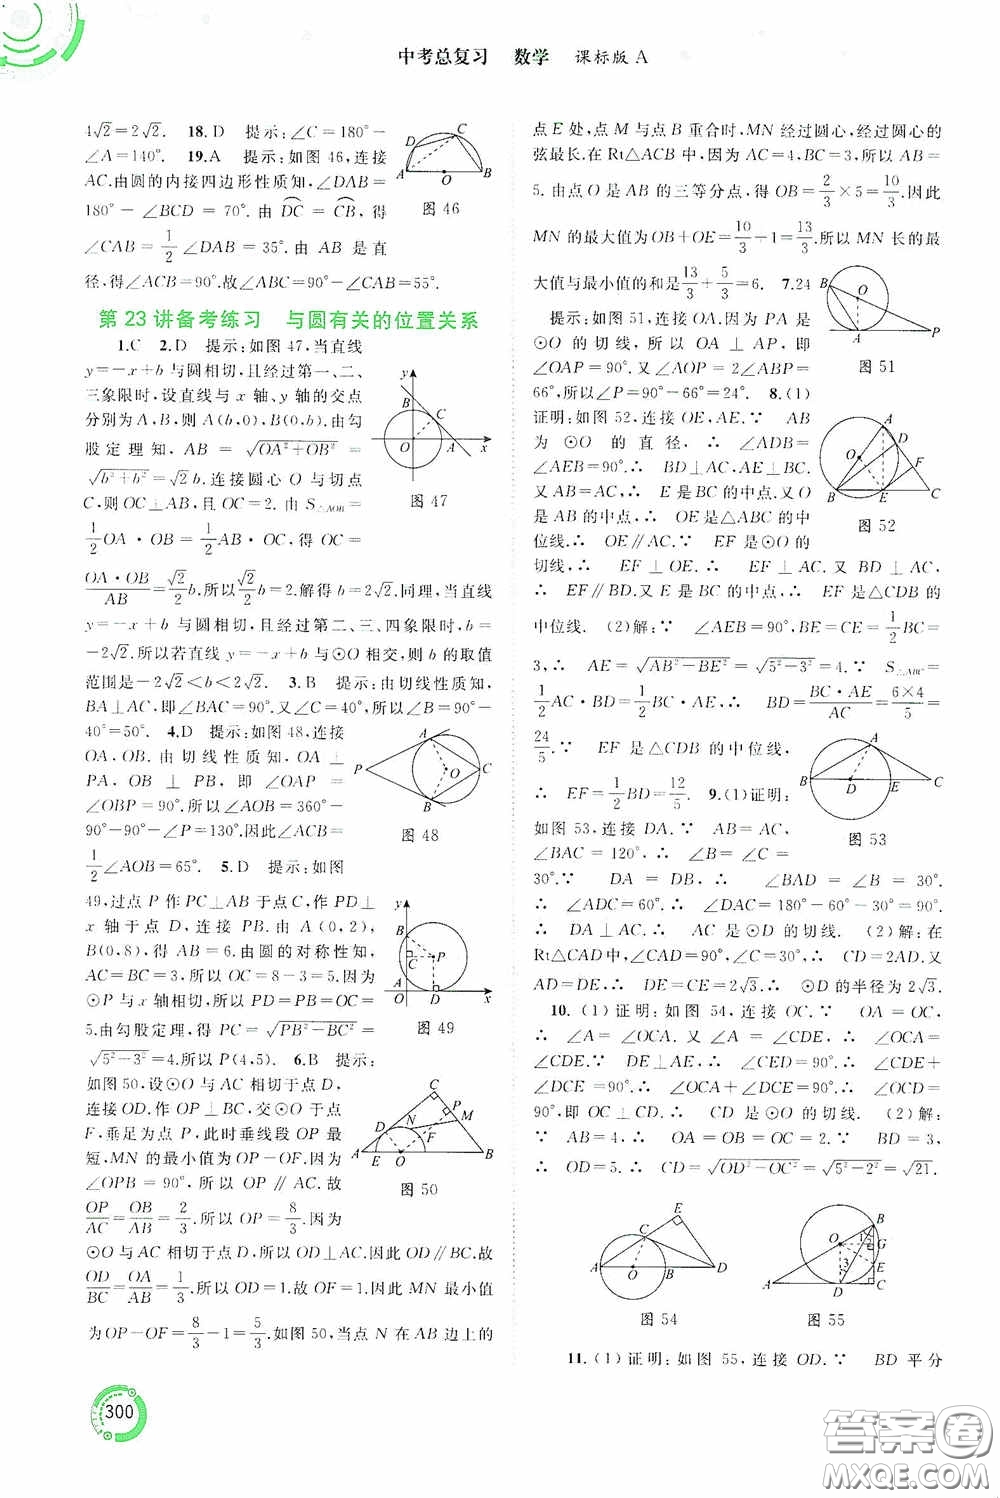 中考总复习 数学 课标版 A
4√2=2√2. 18.D 提示:∠C=180°-
∠A=140°. 19.A 提示:如图 46,连接
AC.由圆的内接四边形性质知,∠DAB=
180°-∠BCD = 70°. 由 DC = CB, 得
∠CAB= 1/2 ∠DAB = 35°. 由 AB 是直
径,得∠ACB=90°.故∠ABC=90°-∠CAB=55°.
D C A O B
图 46
第 23 讲备考练习 与圆有关的位置关系
1.C 2.D 提示:如图 47,当直线
y=-x+b 与圆相切,且经过第一、二、
三象限时,设直线与 x 轴、y 轴的交点
分别为 A,B,则 A(b,0),B(0,b).由勾
股定理知, AB = √(OA²+OB²) =
√(b²+b²) = √2b.连接圆心 O 与切点
C,则 OC⊥AB,且 OC=2. 由 S△AOB=
1/2 OA·OB= 1/2 AB·OC, 得 OC=
OA·OB/AB = √2/2 b,所以 √2/2 b=2.解得 b=2√2.同理,当直线
y=-x+b 与圆相切,且经过第二、三、四象限时,b=
-2√2.所以若直线 y=-x+b 与⊙O 相交,则 b 的取值
范围是-2√2<b<2√2. 3.B 提示:由切线性质知,
BA⊥AC,即∠BAC=90°.又∠C=40°,所以∠B=90°-
40°=50°. 4.D 提示:如图 48,连接
OA,OB. 由切线性质知,OA⊥
PA, OB ⊥ PB, 即 ∠OAP =
∠OBP=90°.所以∠AOB=360°-
90°-90°-∠P=130°.因此∠ACB=
1/2 ∠AOB=65°. 5.D 提示:如图
49,过点 P 作 PC⊥AB 于点 C,作 PD⊥
x 轴于点 D,连接 PB.由 A(0,2),
B(0,8),得 AB=6.由圆的对称性知,
AC=BC=3,所以 OC=8-3=5.因为
⊙P 与 x 轴相切,所以 PD=PB=OC=
5.由勾股定理,得 PC=√(PB²-BC²)=
√(5²-3²)=4.所以 P(4,5). 6.B 提示:
如图 50,设⊙O 与 AC 相切于点 D,
连接 OD.作 OP⊥BC,交⊙O 于点
F,垂足为点 P,此时垂线段 OP 最
短,MN 的最小值为 OP-OF.因为
∠OPB = 90°, 所以 OP∥AC.故
OP/AC = OB/AB = 2/3 .所以 OP= 8/3 .因为
⊙O 与 AC 相切于点 D,所以 OD⊥AC.因此 OD∥BC.故
OD/BC = OA/AB = 1/3 ,所以 OD=1.故 OF=1.因此 MN 最小值
为 OP-OF= 8/3 -1= 5/3 .如图 50,当点 N 在 AB 边上的
y B C O A x
图 47
P A O C B
图 48
y B C P A O D x
图 49
C P M D N F A E O B
图 50
点 E 处,点 M 与点 B 重合时,MN 经过圆心,经过圆心的
弦最长.在 Rt△ACB 中,因为 AC=4,BC=3,所以 AB=
5. 由点 O 是 AB 的三等分点,得 OB= 2/3 ×5= 10/3 .因此
MN 的最大值为 OB+OE= 10/3 +1= 13/3 .所以 MN 长的最
大值与最小值的和是 13/3 + 5/3 =6. 7.24
提示:如图 51,连接 OA.因为 PA 是
⊙O 的切线,所以 OA ⊥ AP, 即
∠OAP=90°.又∠AOP=2∠ABP=
66°,所以∠P=90°-66°=24°. 8.(1)
证明:如图 52,连接 OE,AE.∵ AB
为 ⊙O 的直径, ∴ ∠ADB=
∠AEB=90°.∴ BD⊥AC,AE⊥BC.
又 AB=AC,∴ E 是 BC 的中点.又 O
是 AB 的中点,∴ OE 是△ABC 的中
位线.∴ OE∥AC.∵ EF 是⊙O 的
切线,∴ EF⊥OE.∴ EF⊥AC.又 BD⊥AC,
∴ EF∥BD.又 E 是 BC 的中点,∴ EF 是△CDB 的
中位线. (2)解:∵ ∠AEB=90°,BE=CE= 1/2 BC=
3,∴ AE = √(AB²-BE²) = √(5²-3²) = 4.∵ S△ABC =
1/2 AC·BD= 1/2 BC·AE,∴ BD= BC·AE/AC = 6×4/5 =
24/5 .∵ EF 是△CDB 的中位线,
∴ EF= 1/2 BD= 12/5 . 9.(1)证明:
如图 53,连接 DA.∵ AB = AC,
∠BAC = 120°,∴ ∠B = ∠C =
30°.∵ DA = DB,∴ ∠BAD = ∠B = 30°.
∴ ∠ADC=60°.∴ ∠DAC=180°-60°-30°=90°.
∴ DA⊥AC.∴ AC 是⊙D 的切线. (2)解:在
Rt△CAD 中,∠CAD=90°,∠C=30°,∴ CD=2AD.又
AD=DE,∴ DE=CE=2√3.∴ ⊙D 的半径为 2√3.
10. (1)证明:如图 54,连接 OC.∵ OA=OC,
∴ ∠A = ∠OCA.又 ∠A = ∠CDE,∴ ∠OCA =
∠CDE.∵ DE⊥AE,∴ ∠CED=90°.∴ ∠CDE+
∠DCE = 90°.∴ ∠OCA+∠DCE=90°.∴ ∠OCD=
90°,即 OC⊥CD.∴ CD 是⊙O 的切线. (2)解:
∵ AB=4,∴ OA=OB=OC=2.∵ BD=3,
∴ OD=5.∴ CD=√(OD²-OC²)=√(5²-2²)=√21.
B O A P
图 51
A D O F B E C
图 52
A B D E C
图 53
E C A O B D
图 54
B O 1 2 G E 3 A D C
图 55
11.(1)证明:如图 55,连接 OD.∵ BD 平分
300
答案圈
MXQE.COM